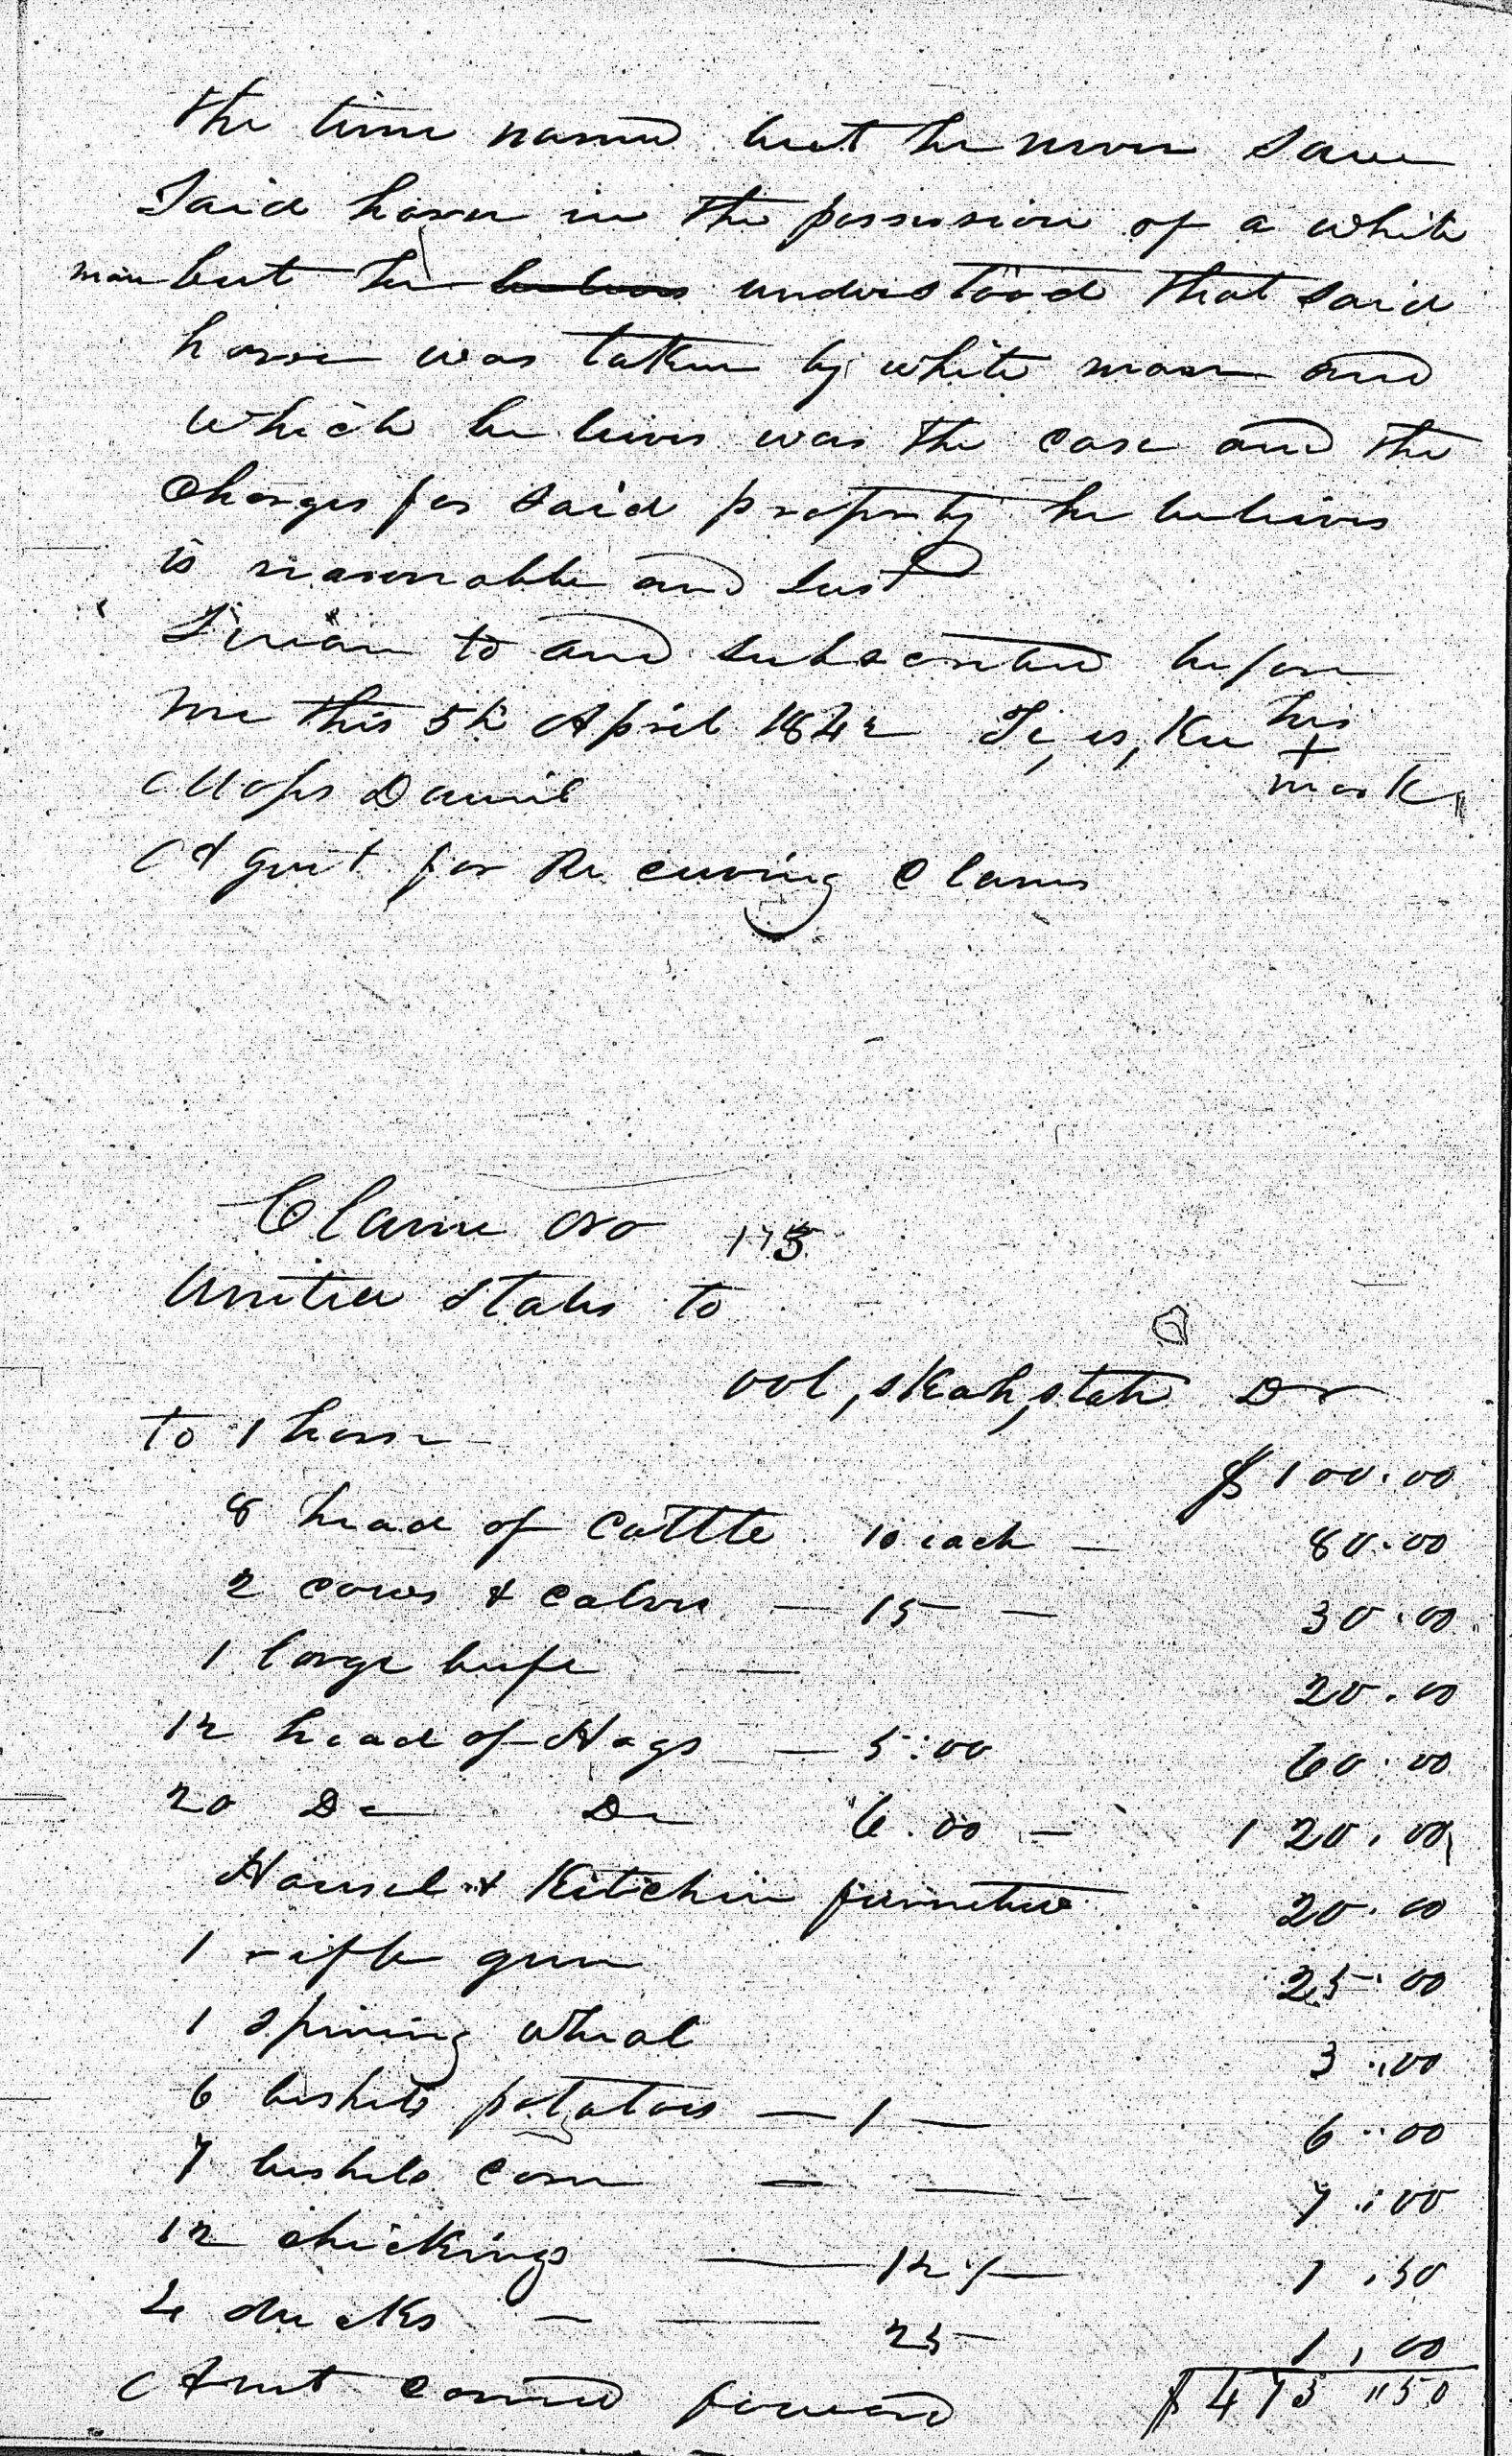 the time named but he never saw
said horse in the possession of a white
man but he believes understood that said
horse was taken by white man and
which believes was the case and the
Charges for said property he believes
is reasonable and Just
Sworn to and subscribed before
me this 5th April 1842 Te, es, Kee his
+
mark
Moses Daniel
Agent for Receiving Claims
Claim No
United States to
ool, skah, stah Dr
To 1 horse $100.00
8 head of Cattle 10 each — 80.00
2 cows & calves — 15 — 30.00
1 large beefe — 20.00
12 head of Hogs — 5:00 60.00
20 Do Do 6.00 — 120.00
Housel & Kitchin furniture 20.00
1 rifle gun 25.00
1 spining wheal 3.00
6 bushels potatoes — 1 — 6.00
7 bushels corn — — 7.00
12 chickings — 12 ½ — 1.50
4 ducks — — 25 1.00
Amt carried forward $473.50